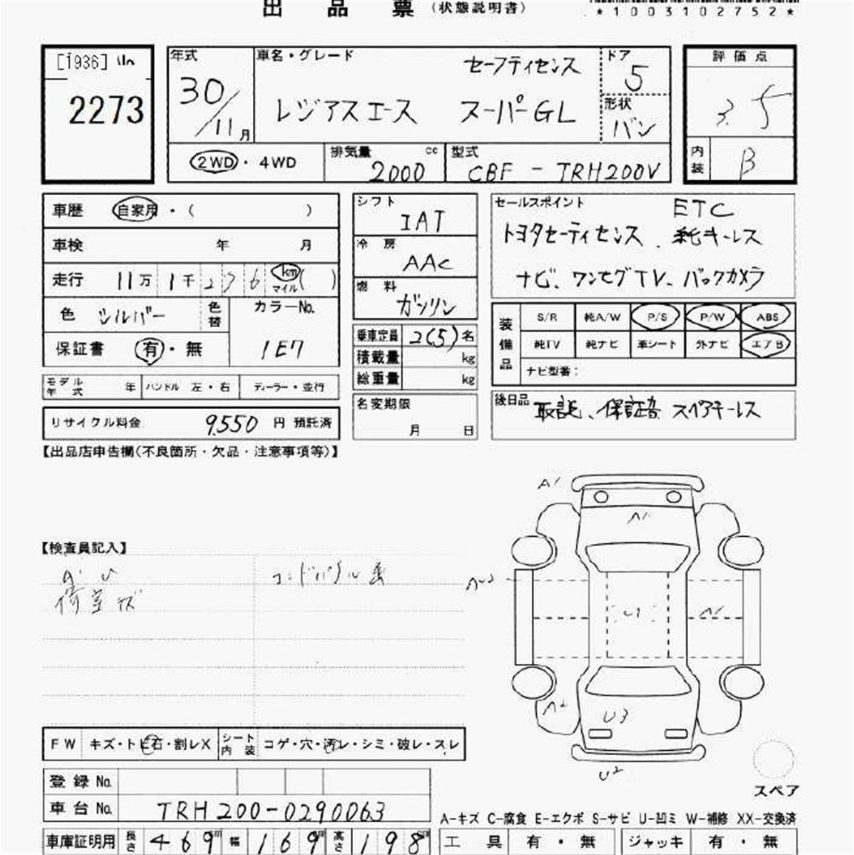 出 品 票 (状態説明書)
*1003102752*
[1936]
2273
年式 車名・グレード セーフティセンス ドア 5
30/11月 レジアスエース スーパーGL 形状 バン
2WD・4WD 排気量 2000 cc 型式 CBF-TRH200V
評価点
3.5
内装 B
車歴 自家用・( )
車検 年 月
走行 11万1千276 km マイル ( )
色 シルバー 色替 カラーNo.
保証書 有・無 1E7
モデル年式 年 ハンドル 左・右 ディーラー・並行
リサイクル料金 9,550 円 預託済
シフト IAT
冷房 AAC
燃料 ガソリン
乗車定員 2(5)名
積載量 kg
総重量 kg
名変期限
月 日
セールスポイント ETC
トヨタセーフティセンス、純キーレス
ナビ、ワンセグTV、バックカメラ
装備品 S/R 純A/W P/S P/W ABS
純TV 純ナビ 革シート 外ナビ エアB
ナビ型番:
後日品 取説、保証書 スペアキーレス
【出品店申告欄(不良箇所・欠品・注意事項等)】
【検査員記入】
A・U
荷室キズ
A1
A1
U1
A1
A2
U3
U2
スペア
FW キズ・トビ石・割レX シート内装 コゲ・穴・汚レ・シミ・破レ・スレ
登録No.
車台No. TRH200-0290063
A-キズ C-腐食 E-エクボ S-サビ U-凹ミ W-補修 XX-交換済
車庫証明用 長さ 469 cm 幅 169 cm 高さ 198 cm 工具 有・無 ジャッキ 有・無